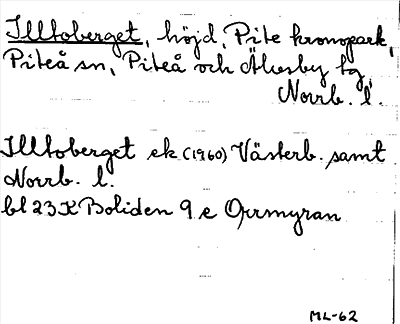 Illtoberget, höjd, Pite kronopark,
Piteå sn, Piteå och Älvsby tg,
Norrb. l.
Illtoberget ek (1960) Västerb. samt
Norrb. l.
bl 23 K Boliden 9 e Orrmyran
ML-62